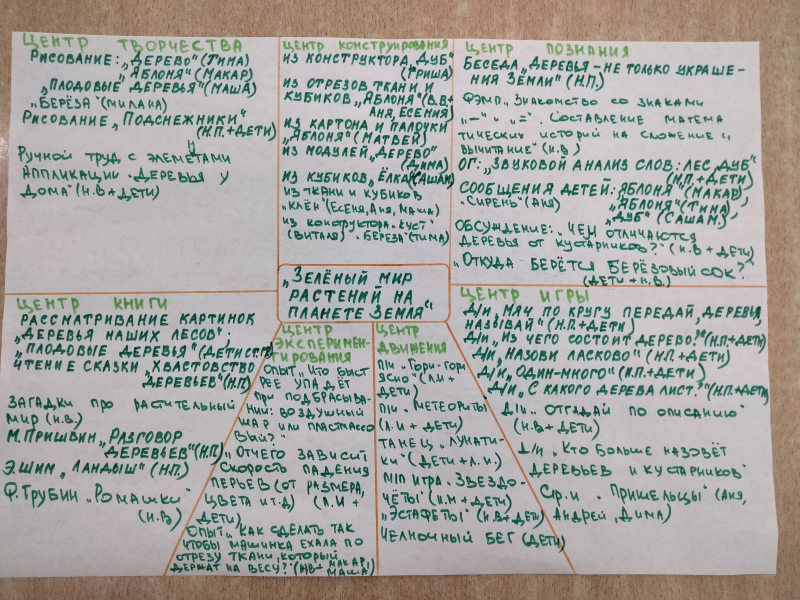 ЦЕНТР ТВОРЧЕСТВА
РИСОВАНИЕ: „ДЕРЕВО“ (ТИМА)
„ЯБЛОНЯ“ (МАКАР)
„ПЛОДОВЫЕ ДЕРЕВЬЯ“ (МАША)
„БЕРЁЗА“ (МИЛАНА)
РИСОВАНИЕ „ПОДСНЕЖНИКИ“
(Н.П.+ДЕТИ)
РУЧНОЙ ТРУД С ЭЛЕМЕТАМИ
АППЛИКАЦИИ „ДЕРЕВЬЯ У
ДОМА“ (Н.В+ДЕТИ)
ЦЕНТР КОНСТРУИРОВАНИЯ
ИЗ КОНСТРУКТОРА „ДУБ“
(ГРИША)
ИЗ ОТРЕЗОВ ТКАНИ И
КУБИКОВ „ЯБЛОНЯ“ (В.В+
АНЯ, ЕСЕНИЯ)
ИЗ КАРТОНА И ПАЛОЧКИ
„ЯБЛОНЯ“ (МАТВЕЙ)
ИЗ МОДУЛЕЙ „ДЕРЕВО“
(ДИМА)
ИЗ КУБИКОВ „ЁЛКА“ (САША М)
ИЗ ТКАНИ И КУБИКОВ
„КЛЁН“ (ЕСЕНЯ, АНЯ, МАША)
ИЗ КОНСТРУКТОРА „КУСТ“
(ВИТАЛЯ) „БЕРЕЗА“ (ТИМА)
ЦЕНТР ПОЗНАНИЯ
БЕСЕДА „ДЕРЕВЬЯ - НЕ ТОЛЬКО УКРАШЕ-
НИЯ ЗЕМЛИ“ (Н.П.)
ФЭМП „ЗНАКОМСТВО СО ЗНАКАМИ
„-“ и „=“. СОСТАВЛЕНИЕ МАТЕМА
ТИЧЕСКИХ ИСТОРИЙ НА СЛОЖЕНИЕ И
ВЫЧИТАНИЕ“ (Н.В)
ОГ: „ЗВУКОВОЙ АНАЛИЗ СЛОВ: ЛЕС, ДУБ“
(Н.П.+ДЕТИ)
СООБЩЕНИЯ ДЕТЕЙ: „ЯБЛОНЯ“ (МАКАР)
„СИРЕНЬ“ (АНЯ) „ЯБЛОНЯ“ (ТИМА)
„ДУБ“ (САША М.)
ОБСУЖДЕНИЕ: „ЧЕМ ОТЛИЧАЮТСЯ
ДЕРЕВЬЯ ОТ КУСТАРНИКОВ?“ (Н.В+ДЕТИ)
„ОТКУДА БЕРЁТСЯ БЕРЁЗОВЫЙ СОК?“
(ДЕТИ+Н.В.)
„ЗЕЛЁНЫЙ МИР
РАСТЕНИЙ НА
ПЛАНЕТЕ ЗЕМЛЯ“
ЦЕНТР КНИГИ
РАССМАТРИВАНИЕ КАРТИНОК
„ДЕРЕВЬЯ НАШИХ ЛЕСОВ“;
„ПЛОДОВЫЕ ДЕРЕВЬЯ“
ЧТЕНИЕ СКАЗКИ „ХВАСТОВСТВО
ДЕРЕВЬЕВ“ (Н.П)
ЗАГАДКИ ПРО РАСТИТЕЛЬНЫЙ
МИР (Н.В.)
М.ПРИШВИН „РАЗГОВОР
ДЕРЕВЬЕВ“ (Н.П)
Э.ШИМ „ЛАНДЫШ“ (Н.П.)
Ф.ГРУБИН „РОМАШКИ“
(Н.В)
ЦЕНТР
ЭКСПЕРИМЕН-
ТИРОВАНИЯ
ОПЫТ „ЧТО БЫСТ
РЕЕ УПАДЁТ
ПРИ ПОДБРАСЫВА-
НИИ: ВОЗДУШНЫЙ
ШАР ИЛИ ПЛАСТМАССО
ВЫЙ?“
„ОТЧЕГО ЗАВИСИТ
СКОРОСТЬ ПАДЕНИЯ
ПЕРЬЕВ (ОТ РАЗМЕРА,
ЦВЕТА И Т.Д) (Л.И+
ДЕТИ)
ОПЫТ „КАК СДЕЛАТЬ ТАК
ЧТОБЫ МАШИНКА ЕХАЛА ПО
ОТРЕЗУ ТКАНИ, КОТОРЫЙ
ДЕРЖАТ НА ВЕСУ?“ (НВ+ МАКАР,
МАША)
ЦЕНТР
ДВИЖЕНИЯ
П/И „ГОРИ-ГОРИ
ЯСНО“ (Л.И+
ДЕТИ)
П/И „МЕТЕОРИТЫ“
(Л.И+ДЕТИ)
ТАНЕЦ „ЛУНАТИ-
КИ“ (ДЕТИ+Л.И.)
М/П ИГРА „ЗВЕЗДО-
ЧЁТЫ“ (И.Н+ДЕТИ)
„ЭСТАФЕТЫ“ (Н.В+ДЕТИ)
ЧЕЛНОЧНЫЙ БЕГ (ДЕТИ)
ЦЕНТР ИГРЫ
Д/И „МЯЧ ПО КРУГУ ПЕРЕДАЙ, ДЕРЕВЬЯ,
НАЗЫВАЙ“ (Н.П+ДЕТИ)
Д/И „ИЗ ЧЕГО СОСТОИТ ДЕРЕВО?“ (Н.П+ДЕТИ)
Д/И „НАЗОВИ ЛАСКОВО“ (Н.П+ДЕТИ)
Д/И „ОДИН-МНОГО“ (Н.П+ДЕТИ)
Д/И „С КАКОГО ДЕРЕВА ЛИСТ?“ (Н.П+ДЕТИ)
Д/И „ОТГАДАЙ ПО ОПИСАНИЮ“
(Н.В+ДЕТИ)
Д/И „КТО БОЛЬШЕ НАЗОВЁТ
ДЕРЕВЬЕВ И КУСТАРНИКОВ“
С/Р.И „ПРИШЕЛЬЦЫ“ (АНЯ,
АНДРЕЙ, ДИМА)